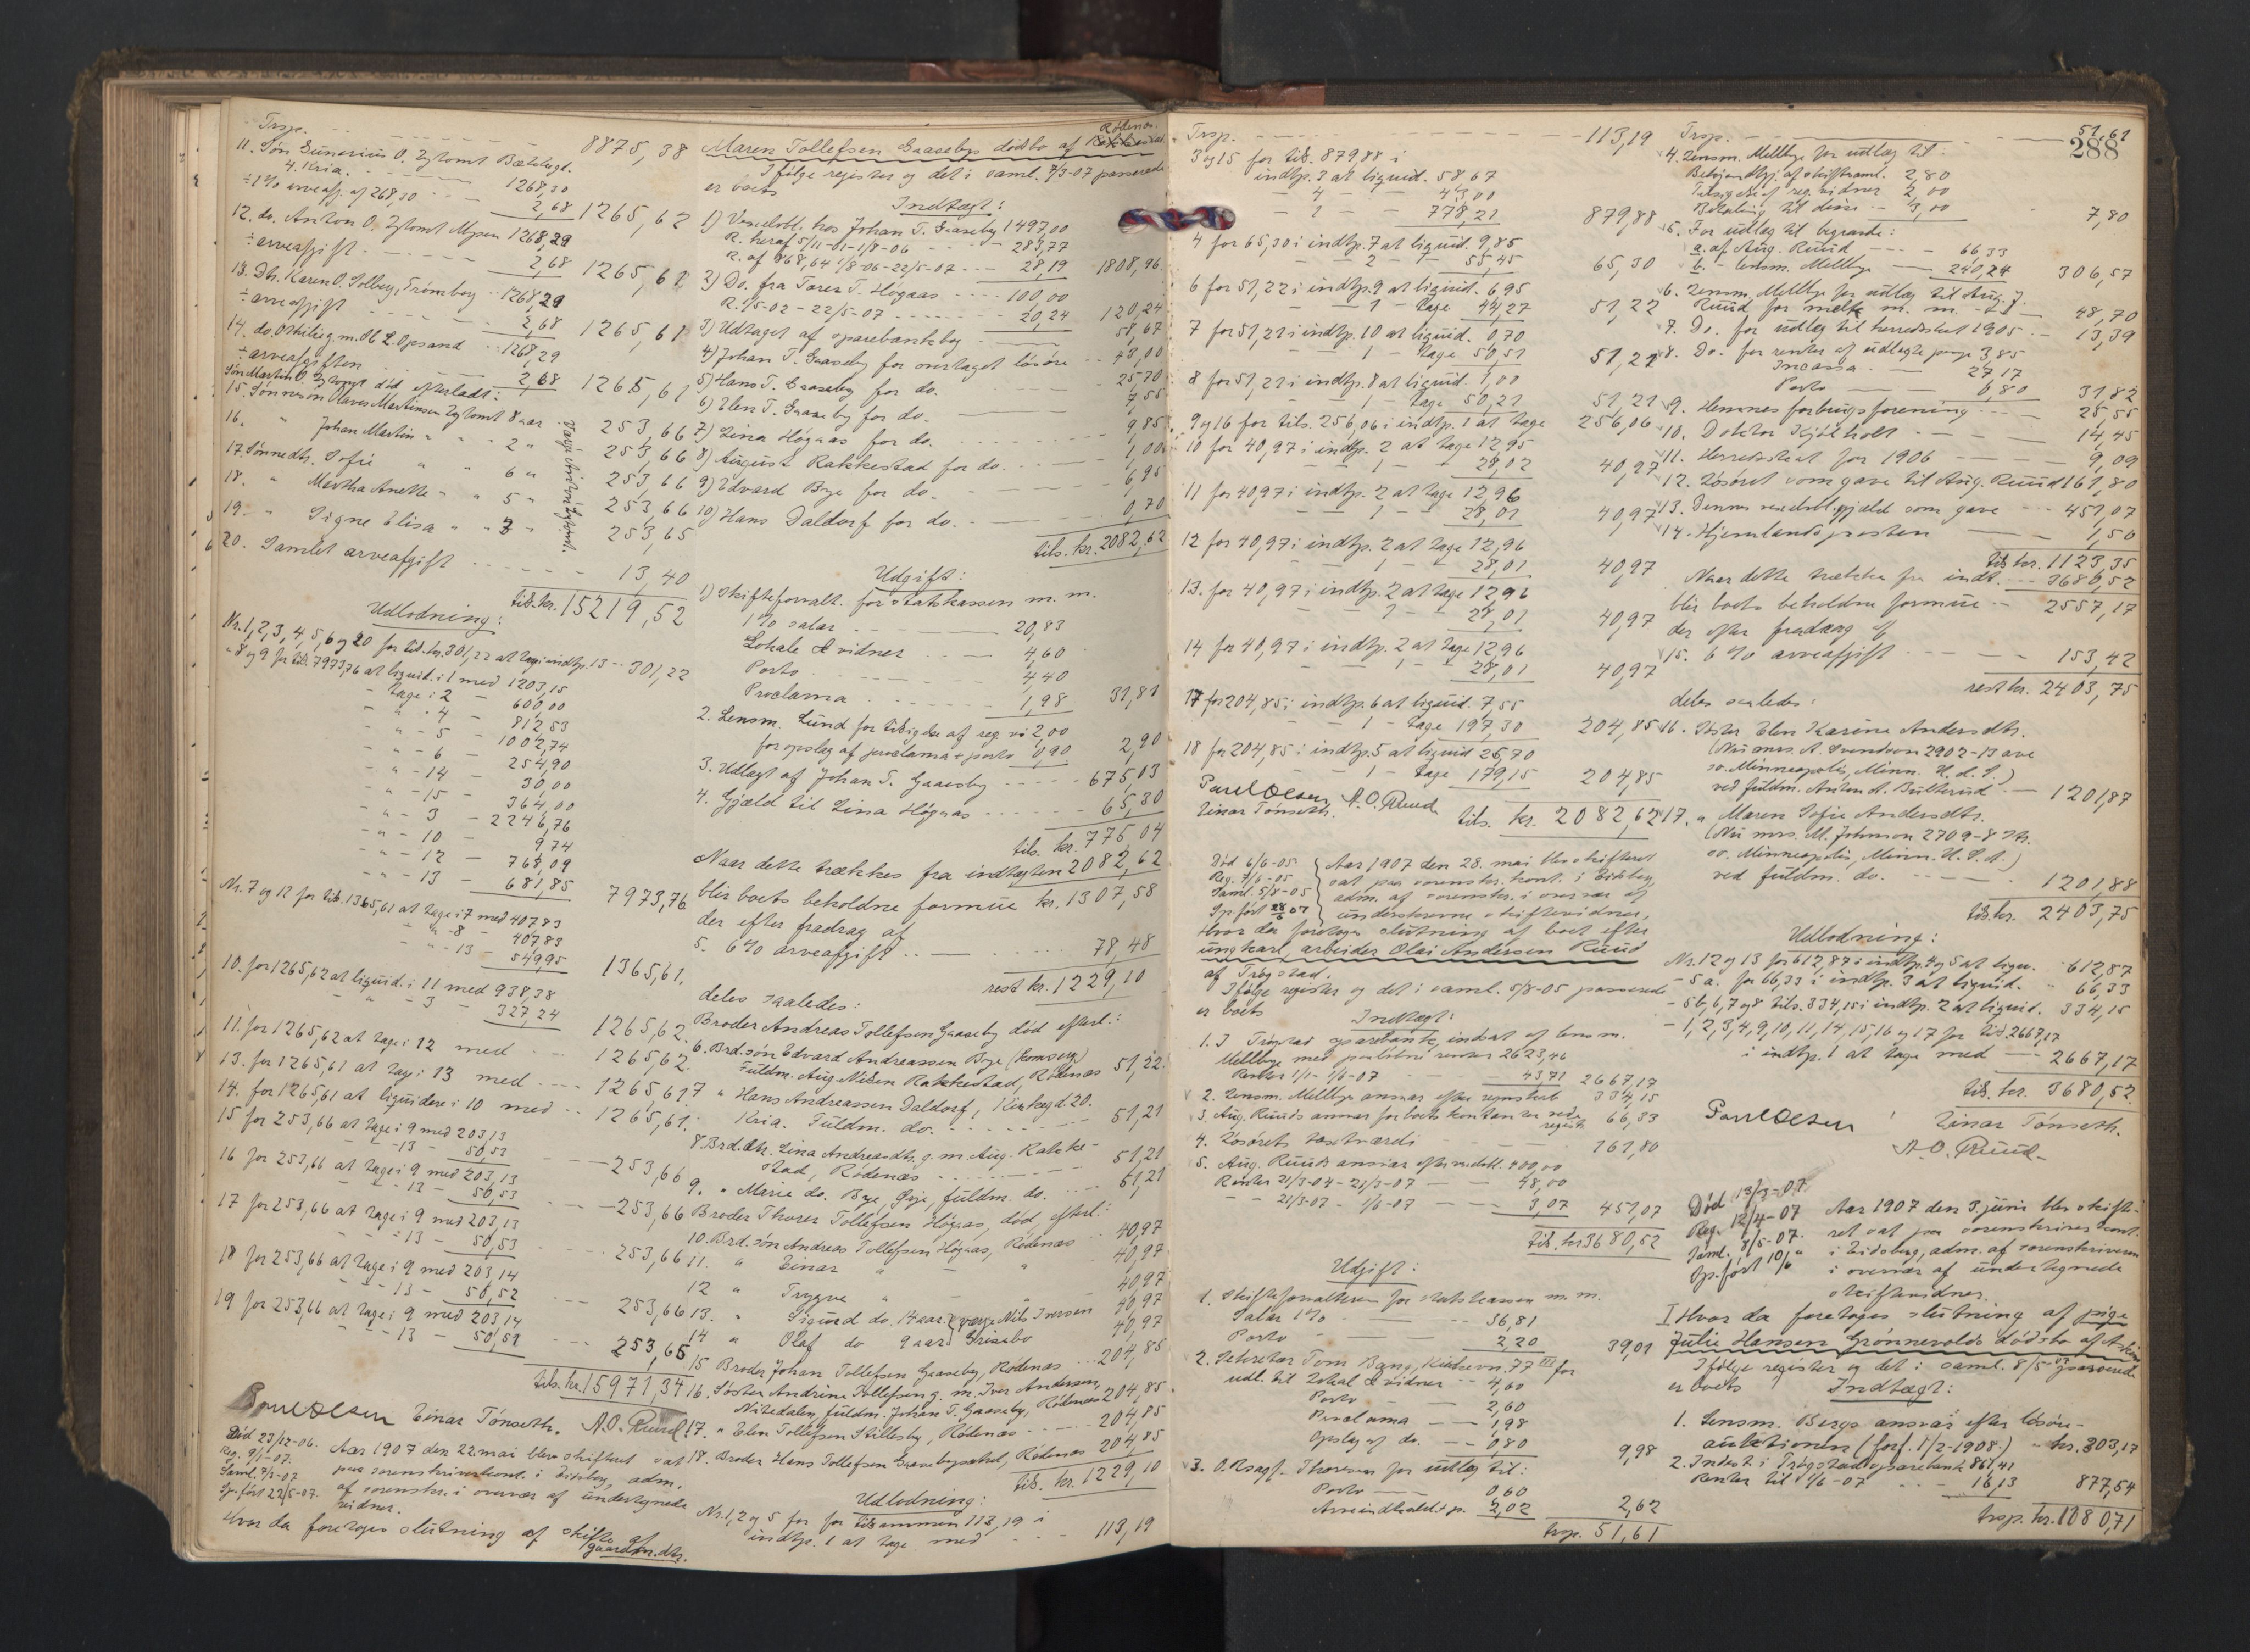 Trsp. 8875,38
11. Søn Gunerius O. Zytomt Bøtslagt.
4. Kria. 1268,30
÷ 1% arveafg. af 268,30 2,68 1265,62
12. do. Anton O. Zytomt Mysen 1268,29
÷ arveafgift 2,68 1265,61
13. Dtr. Karen O. Solberg, Trømborg 1268,29
÷ arveafgift 2,68 1265,61
14. do. Othilie g. m. Ole L. Opsand 1268,29
÷ arveafgiften 2,68 1265,61
Søn Martin O. Zytomt død efterladt:
15. Sønnesøn Olaves Martinsen Zytomt 8 aar 253,66
16. " Johan Martin " " 2 " 253,66
17. Sønnedtr. Sofie " " 6 " 253,66
18. " Martha Anette " " 5 " 253,66
19. " Signe Elisa " " 3 " 253,65
20. Samlet arveafgift 13,40
tils. kr. 15219,52
Udlodning:
Nr. 1, 2, 3, 4, 5, 6 og 20 for tils. kr. 301,22 at tage i indtp. 13 301,22
" 8 og 9 for tils. 7973,76 at liquid. i 1 med 1203,15
- tage i 2 - 600,00
- " - 4 - 812,53
- " - 5 - 1002,74
- " - 6 - 254,90
- " - 14 - 30,00
- " - 15 - 364,00
- " - 3 - 2246,76
- " - 10 - 9,74
- " - 12 - 768,09
- " - 13 - 681,85 7973,76
Nr. 7 og 12 for tils. 1365,61 at tage i 7 med 407,83
- " - 8 - 407,83
- " - 13 - 549,95 1365,61.
10. for 1265,62 at liquid. i 11 med 938,38
- " - 3 - 327,24 1265,62.
11. for 1265,62 at tage i 12 med 1265,62.
13. for 1265,61 at tage i 13 med 1265,61
14. for 1265,61 at liquidere i 10 med 1265,61.
15 for 253,66 at tage i 9 med 203,13
- - 13 - 50,53 253,66
16 for 253,66 at tage i 9 med 203,13
- - 13 - 50,53 253,66
17 for 253,66 at tage i 9 med 203,13
- - 13 - 50,53 253,66
18 for 253,66 at tage i 9 med 203,14
- - 13 - 50,52 253,66
19 for 253,66 at tage i 9 med 203,14
- - 13 - 50,51 253,65
tils. kr. 15971,34
Paul Olsen Einar Tønseth. A. O. Ruud
Død 23/12-06.
Reg. 9/1-07.
Saml. 7/3-07
Sp. ført 22/5-07.
Aar 1907 den 22. mai blev skifteret sat
paa sorenskriverkont. i Eidsberg, adm.
af sorenskr. i overvær af undertegnede
vidner.
Hvor da foretoges slutning af skifte af
gaardm. dtr.
Maren Tollefsen Gaasebys dødsbo af Rødenes.
Ifølge register og det i saml. 7/3-07 passerede
er boets
Indtægt:
1) Vexelobl. hos Johan T. Gaaseby 1497,00
R. heraf 5/11-01-1/8-06 283,77
R. af 868,64 1/8-06-22/5-07 28,19 1808,96
2) Do. fra Torer T. Høgaas 100,00
R. 1/5-02-22/5-07 20,24 120,24
3) Udtaget af sparebankbog 58,67
4) Johan T. Gaaseby for overtaget løsøre 43,00
5) Hans T. Gaaseby for do. 25,70
6) Elen T. Gaaseby for do. 7,55
7) Lina Høgaas for do. 9,85
8) August Rakkestad for do. 1,00
9) Edvard Bye for do. 6,95
10) Hans Daldorf for do. 0,70
tils. kr. 2082,62
Udgift:
1) Skifteforvalt. for statskassen m. m.
1% salær 20,83
Lokale & vidner 4,60
Porto 4,40
Proclama 1,98 31,81
2. Lensm. Lund for tilsigelse af reg. vi 2,00
for opslag af proclama + porto 0,90 2,90
3. Udlagt af Johan T. Gaaseby 675,03
4. Gjæld til Lina Høgaas 65,30
tils. kr. 775,04
Naar dette trækkes fra indtægten 2082,62
blir boets beholdne formue kr. 1307,58
der efter fradrag af
5. 6% arveafgift 78,48
rest kr. 1229,10
deles saaledes:
Broder Andreas Tollefsen Gaaseby død efterl.:
6. Brd. søn Edvard Andreassen Bye (Romsery)
Fuldm. Aug. Nilsen Rakkestad, Rødenes 51,22
7 " Hans Andreassen Daldorf, Kirkegd. 20.
Kria. Fuldm. do. 51,21
8. Brd. dtr. Lina Andreasdtr. g. m. Aug. Rakke-
stad, Rødenes 51,21
9. " Marie do. Bye, Øyje, fuldm. do. 51,21
Broder Thorer Tollefsen Høgaas, død, efterl.:
10. Brd. søn Andreas Tollefsen Høgaas, Rødenes 40,97
11. " Einar " - " 40,97
12 " Trygve " - - 40,97
13. " Sigurd do. 14 aar } verge Nils Iversen 40,97
14 " Olaf do 9 aar } Grisebo 40,97
15 Broder Johan Tollefsen Gaaseby, Rødenes 204,85
16. Søster Andrine Tollefsen g. m. Iver Andersen,
Nitedalen, fuldm. Johan T. Gaaseby, Rødenes 204,85
17. " Elen Tollefsen Stillesby, Rødenes 204,85
18. Broder Hans Tollefsen Gaasebysætrel, Rødenes 204,85
tils. kr. 1229,10
Udlodning:
Nr. 1, 2 og 5 for for tilsammen 113,19 i
indtp. 1 at tage med 113,19
Trsp. 113,19
3 og 15 for tils. 879,88 i
indtp. 3 at liquid. 58,67
- 4 - - 43,00
- 1 - - 778,21 879,88
4 for 65,30 i indtp. 7 at liquid. 9,85
- - 2 - - 55,45 65,30
6 for 51,22 i indtp. 9 at liquid. 6,95
- - 1 - tage 44,27 51,22
7 for 51,21 i indtp. 10 at liquid. 0,70
- - 1 - tage 50,51 51,21
8 for 51,21 i indtp. 8 at liquid. 1,00
- - 1 - tage 50,21 51,21
9 og 16 for tils. 256,06 i indtp. 1 at tage 256,06
10 for 40,97 i indtp. 2 at tage 12,95
- - 1 - - 28,02 40,97
11 for 40,97 i indtp. 2 at tage 12,96
- - 1 - - 28,01 40,97
12 for 40,97 i indtp. 2 at tage 12,96
- - 1 - - 28,01 40,97
13. for 40,97 i indtp. 2 at tage 12,96
- - 1 - 28,01 40,97
14 for 40,97 i indtp. 2 at tage 12,96
- - 1 - - 28,01 40,97
17 for 204,85 i indtp. 6 at liquid. 7,55
- - 1 - tage 197,30 204,85
18 for 204,85 i indtp. 5 at liquid 25,70
- - 1 - tage 179,15 204,85
Paul Olsen A. O. Ruud
Einar Tønseth. tils. kr. 2082,62
Død 6/6-05
Reg. 7/6-05
Saml. 5/8-05
Sp. ført 28/6 07
Aar 1907 den 28. mai blev skifteret
sat paa sorenskr. kont. i Eidsberg,
adm. af sorenskr. i overvær af
underskrevne skiftevidner,
Hvor da foretoges slutning af boet efter
ungkarl, arbeider Olai Andersen Ruud
af Trøgstad.
Ifølge register og det i saml. 5/8-05 passerede
er boets
Indtægt:
1. I Trøgstad sparebank, indsat af lensm.
Mellbye med paaløbne renter 2623,46
Renter 1/1-1/6-07 43,71 2667,17
2. Lensm. Mellbyes ansvar efter regnskab 334,15
3. Aug. Ruuds ansvar for boets kontanter ved
registr. 66,33
4. Løsørets taxtværdi 161,80
5. Aug. Ruuds ansvar efter vexelobl. 400,00
Renter 21/3-04-21/3-07 48,00
- - 21/3-07-1/6-07 3,07 451,07
tils. kr. 3680,52
Udgift:
1. Skifteforvalteren for statskassen m. m.
Salær 1% 36,81
Porto 2,20 39,01
2. Sekretær Tom Bang, Kirkevn. 77 III for
udl. til lokal & vidner 4,60
Porto 2,60
Proclama 1,98
Opslag af do. 0,80 9,98
3. O.Rsagf. Thoresen for udlæg til:
Porto 0,60
Arveindkald. + p. 2,02 2,62
trsp. 51,61
288
Trsp. 51,61
4. Lensm. Mellbye for udlæg til:
Bekjendtgj. af skiftesaml. 2,80
Tilsigelse af reg. vidner 2,00
Betaling til disse 3,00 7,80
5. For udlæg til begravelse:
a. af Aug. Ruud 66,33
b. - lensm. Mellbye 240,24 306,57
6. Lensm. Mellbye for udlæg til Aug. J.
Ruud for melk m. m. 48,70
7. Do. for udlæg til herredsskat 1905 13,39
8. Do. for renter af udlagte penge 3,85
Incasso 21,17
Porto 6,80 31,82
9. Hemnes forbrugsforening 25,55
10. Doktor Kjølholt 14,45
11. Herredsskat for 1906 9,09
12. Løsøret som gave til Aug. Ruud 161,80
13. Dennes vexelobl. gjæld som gave 451,07
14. Hjemlandsposten 1,50
tils. kr. 1123,35
Naar dette trækkes fra indt. 3680,52
blir boets beholdne formue 2557,17
der efter fradrag af
15. 6% arveafgift 153,42
rest kr. 2403,75
deles saaledes:
16. Søster Elen Karine Andersdtr.
(Nu mrs. A. Svendsen 2902-13 ave
so. Minneapolis, Minn. U. S. A.)
ved fuldm. Anton A. Bulterud 1201,87
17. " Maren Sofie Andersdtr.
(Nu mrs. M. Johnson 2709-8 Str.
so. Minneapolis, Minn. U. S. A.)
ved fuldm. do. 1201,88
tils. kr. 2403,75
Udlodning:
Nr. 12 og 13 for 612,87 i indtp. 4 og 5 at liqu. 612,87
- 5 a. for 66,33 i indtp. 3 at liquid. 66,33
- 5 b, 6, 7 og 8 tils. 334,15 i indtp. 2 at liquid. 334,15
- 1, 2, 3, 4, 9, 10, 11, 14, 15, 16 og 17 for tils 2667,17
i indtp. 1 at tage med 2667,17
tils. kr. 3680,52.
Paul Olsen Einar Tønseth.
A. O. Ruud
Død 13/3-07.
Reg. 12/4-07
Saml. 8/5-07.
Sp. ført 10/6 "
Aar 1907 den 3. juni blev skifte-
ret sat paa sorenskriverkont.
i Eidsberg, adm. af sorenskriveren
i overvær af undertegnede
skiftevidner.
I Hvor da foretoges slutning af pige
Julie Hansen Grønnevolds dødsbo af Askim
Ifølge register og det i saml. 8/5-07 passerede
er boets Indtægt:
1. Lensm. Bergs ansvar efter løsøre-
auktionen (forf. 1/2-1908.) kr. 203,17
2. Indest. i Trøgstad sparebank 861,41
Renter til 1/6-07 16,13 877,54
trsp. kr. 1080,71